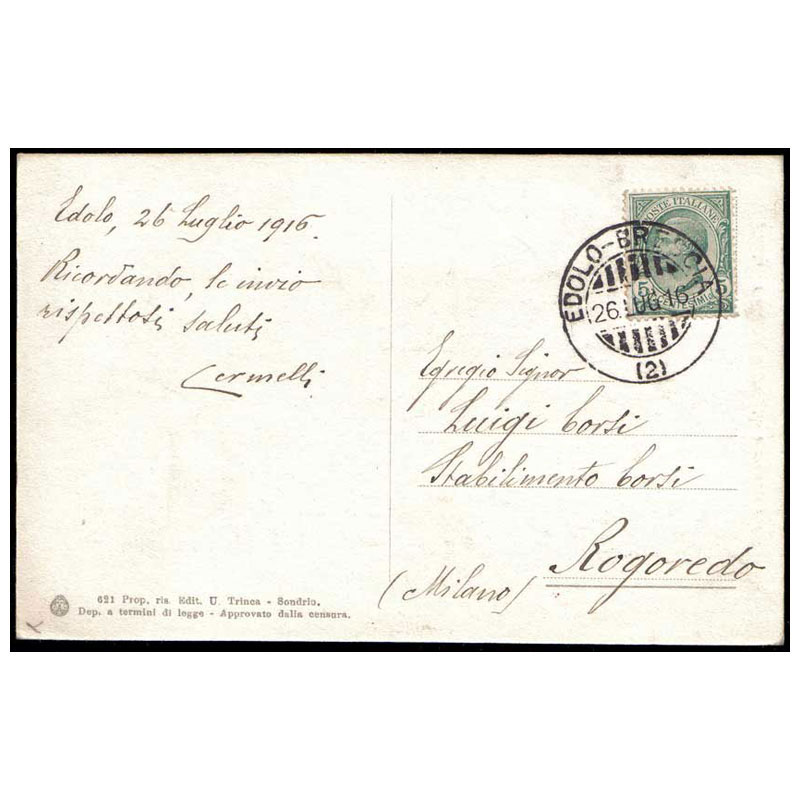 Edolo, 26 Luglio 1916.
Ricordando, le invio
rispettosi saluti
Cermelli
POSTE ITALIANE
5 CENTESIMI 5
EDOLO-BRESCIA
26.LUG.16
(2)
Egregio Signor
Luigi Corsi
Stabilimento Corsi
Rogoredo
(Milano)
621 Prop. ris. Edit. U. Trinca - Sondrio.
Dep. a termini di legge - Approvato dalla censura.